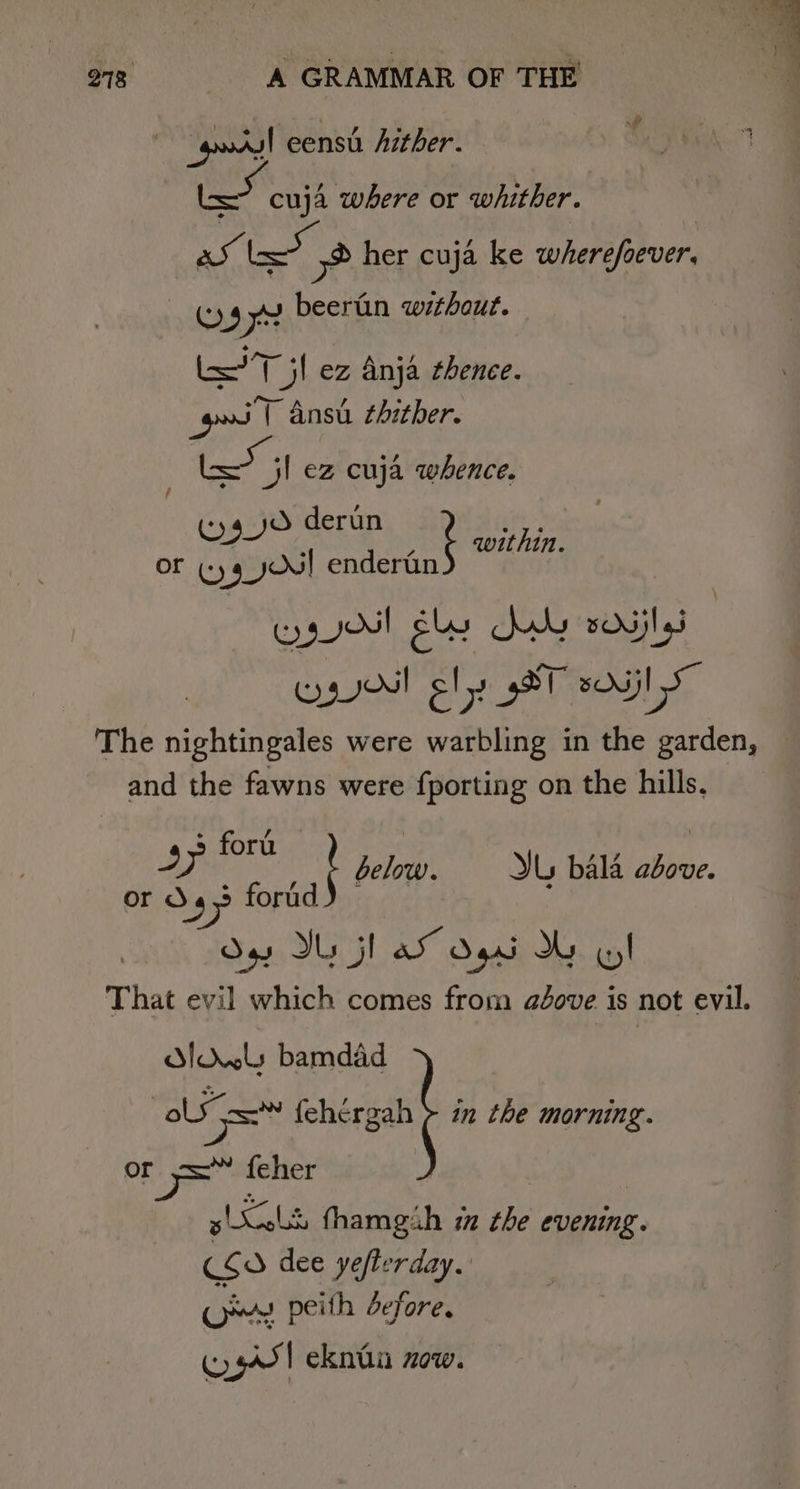 278 A GRAMMAR OF THE
اینسو eensú hither.
کجا cujá where or whither.
هر کجا که her cujá ke wherefoever.
بیرون beerún without.
از آنجا ez ânjá thence.
آنسو ânsú thither.
از کجا ez cujá whence.
درون derún
within.
or اندرون enderún
نوازنده بلبل بباغ اندرون
کرازنده آهو براغ اندرون
The nightingales were warbling in the garden,
and the fawns were fporting on the hills.
فرو forú
below. بالا bálá above.
or فرود forúd
ان بلا نبود که از بالا بود
That evil which comes from above is not evil.
بامداد bamdâd
سحرگاه fehérgah in the morning.
or سحر feher
شامگاه fhamgáh in the evening.
دی dee yefterday.
پیش peifh before.
اکنون eknún now.